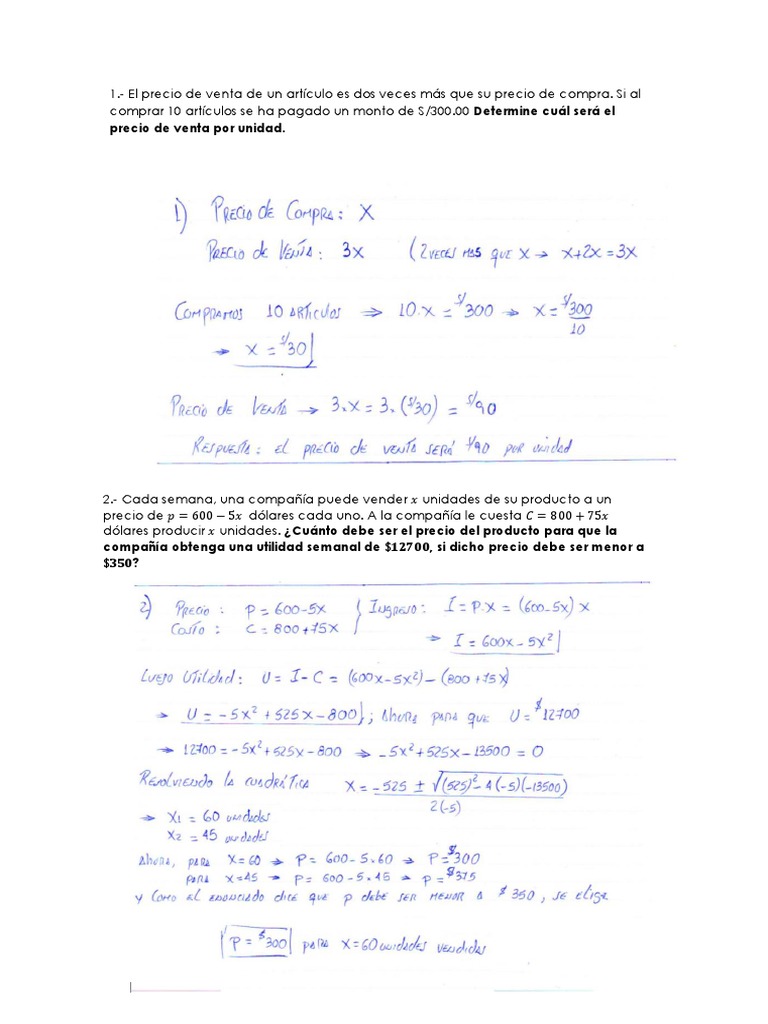 1.- El precio de venta de un artículo es dos veces más que su precio de compra. Si al
comprar 10 artículos se ha pagado un monto de S/300.00 Determine cuál será el
precio de venta por unidad.
1) PRECIO DE COMPRA: X
PRECIO DE VENTA: 3X (2 VECES MAS QUE X → X+2X = 3X
COMPRAMOS 10 ARTÍCULOS ⇒ 10.X = S/300 → X = S/300/10
→ X = S/30
PRECIO DE VENTA → 3.X = 3.(S/30) = S/90
RESPUESTA: EL PRECIO DE VENTA SERÁ S/90 POR UNIDAD
2.- Cada semana, una compañía puede vender x unidades de su producto a un
precio de p = 600 − 5x dólares cada uno. A la compañía le cuesta C = 800 + 75x
dólares producir x unidades. ¿Cuánto debe ser el precio del producto para que la
compañía obtenga una utilidad semanal de $12700, si dicho precio debe ser menor a
$350?
2) PRECIO: P = 600-5X } INGRESO: I = P.X = (600-5X) X
COSTO: C = 800+75X → I = 600X - 5X²
LUEGO UTILIDAD: U = I - C = (600X-5X²) - (800+75X)
→ U = -5X² + 525X - 800 ; AHORA PARA QUE U = $12700
→ 12700 = -5X² + 525X - 800 → -5X² + 525X - 13500 = 0
RESOLVIENDO LA CUADRÁTICA X = -525 ± √((525)² - 4(-5)(-13500)) / 2(-5)
→ X1 = 60 UNIDADES
X2 = 45 UNIDADES
AHORA, PARA X=60 → P = 600 - 5.60 → P = $300
PARA X=45 → P = 600 - 5.45 → P = $375
Y COMO EL ENUNCIADO DICE QUE P DEBE SER MENOR A $350, SE ELIGE
P = $300 PARA X = 60 UNIDADES VENDIDAS